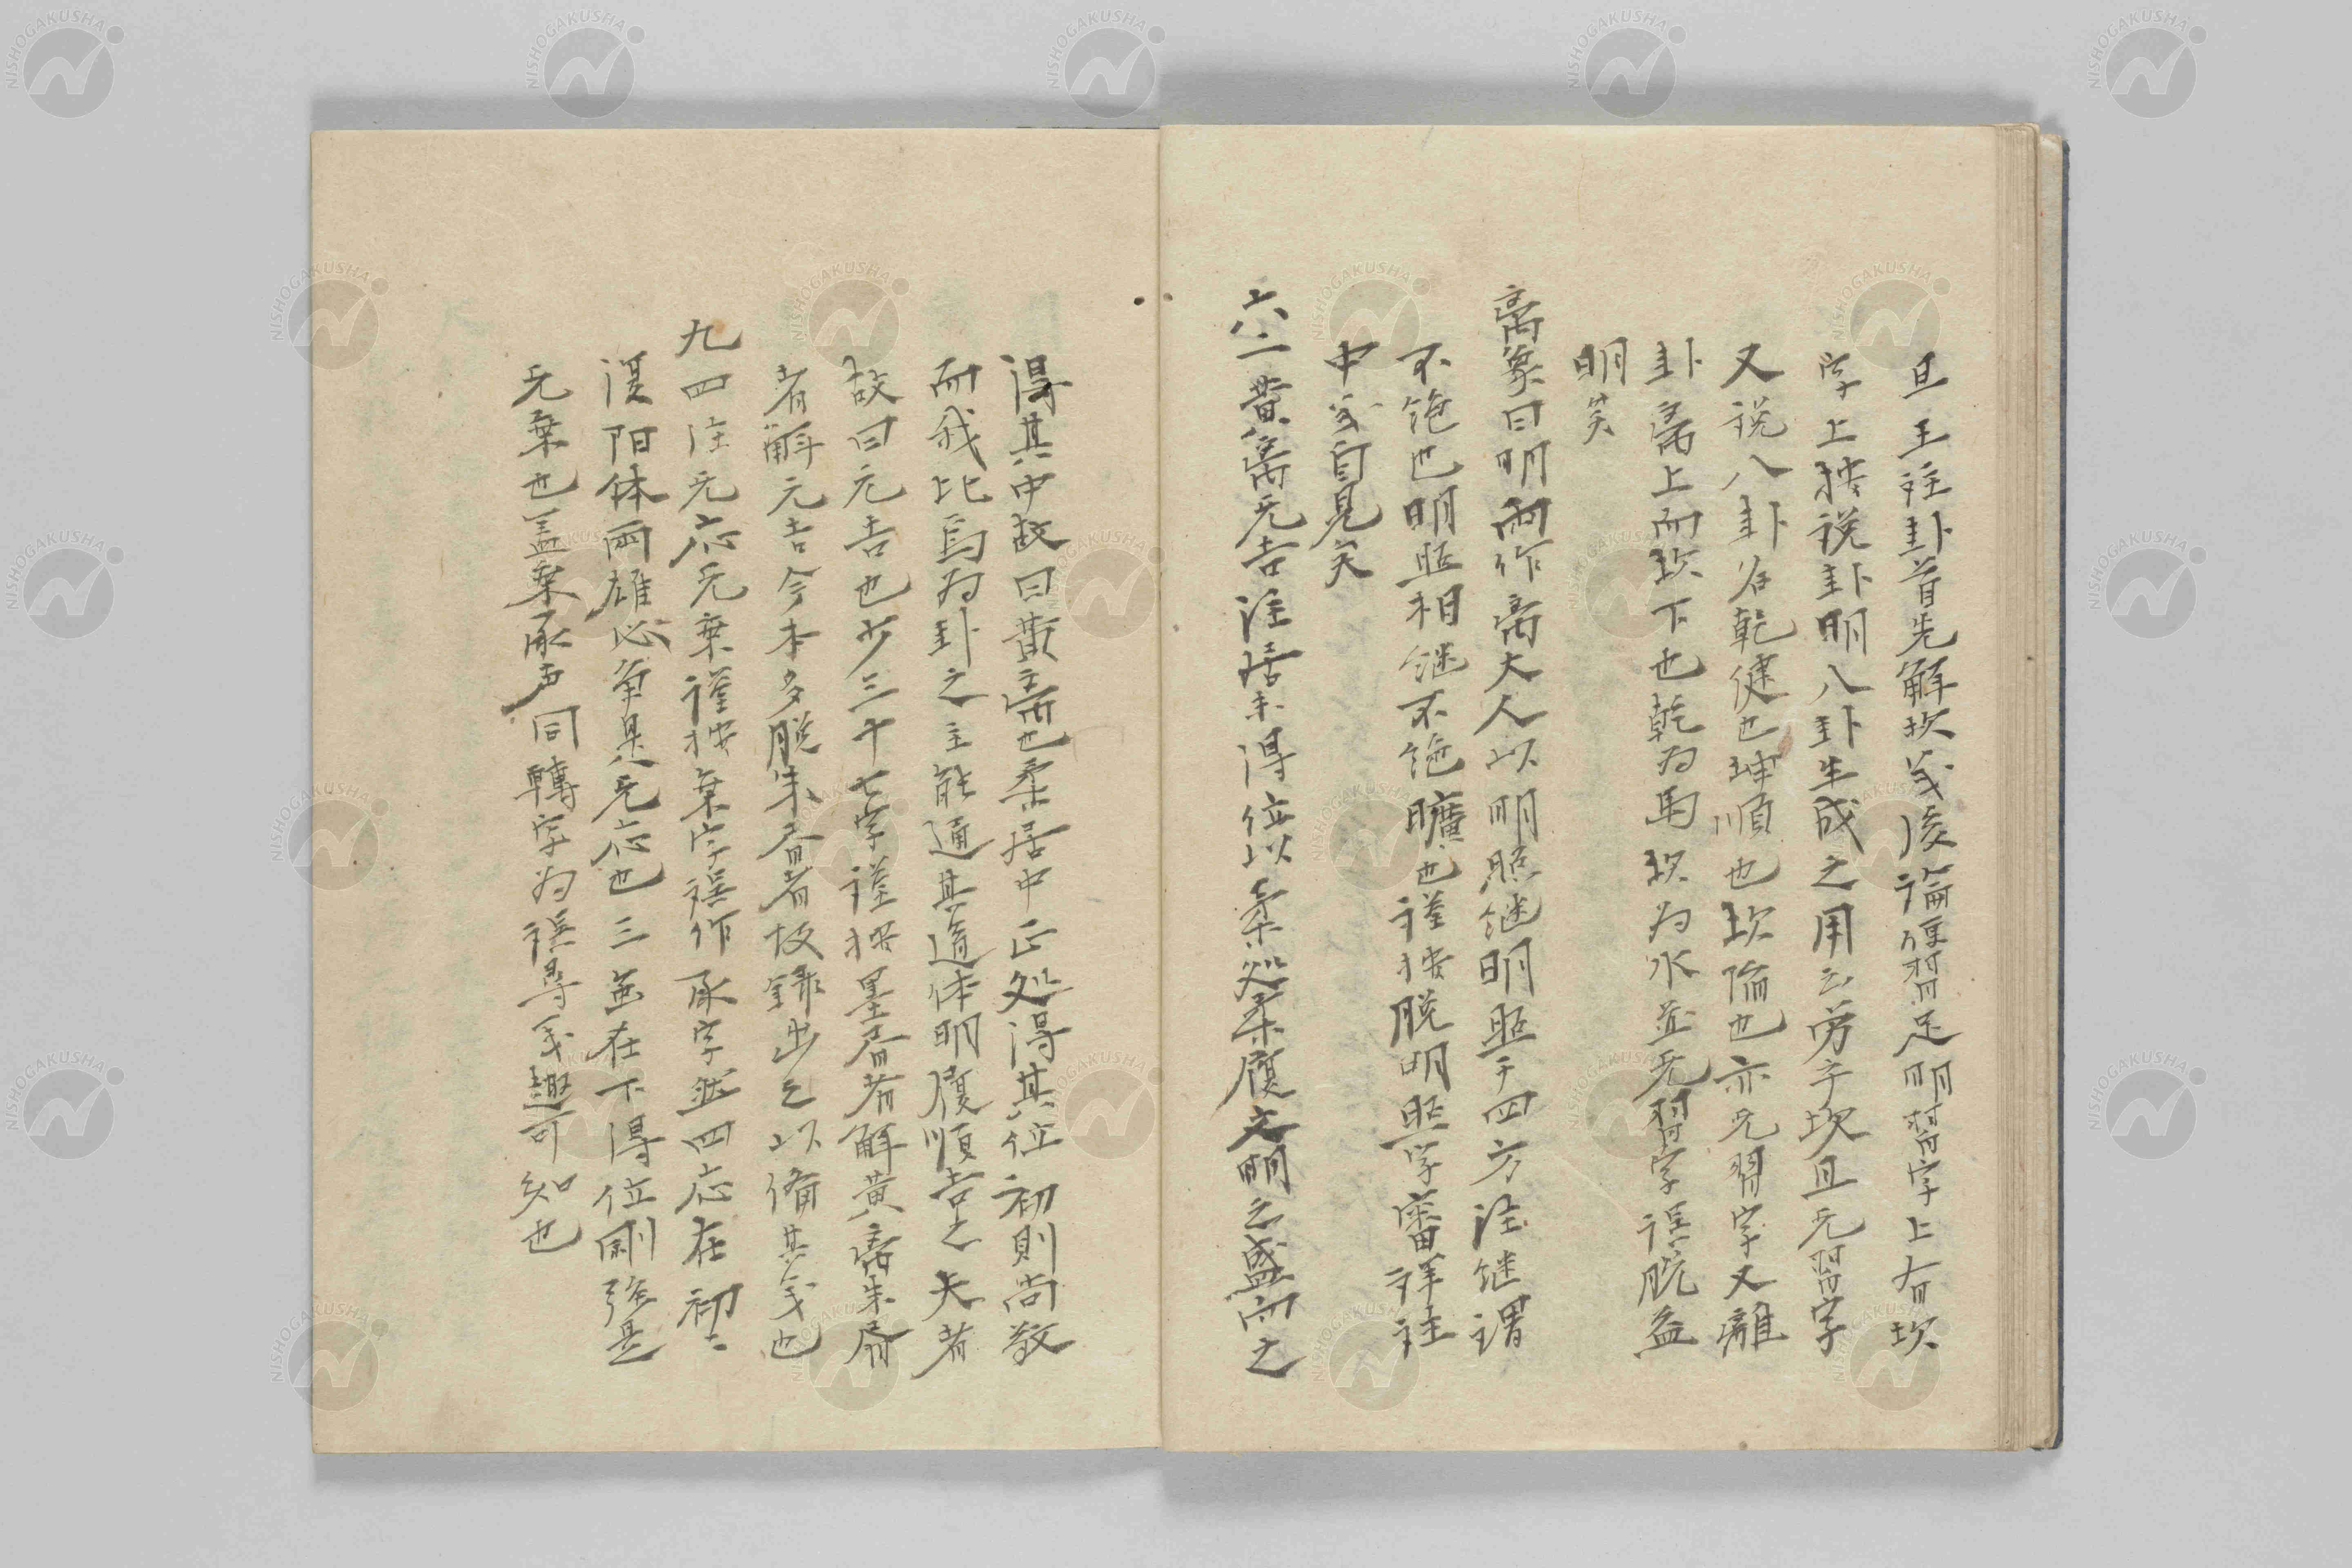 且王註卦首先解坎義後論重習足明習字上有坎
字上按説卦明八卦生成之用云労乎坎且无習字
又説八卦名乾健也坤順也坎陥也亦无習字又離
卦离上而坎下也乾為馬坎為水並无習字誤脱益
明矣
离象曰明兩作离大人以明照継明照于四方注継謂
不絶也明照相継不絶曠也謹按脱明照字審詳註
中義自見矣
六二黄离元吉注居中得位以柔処柔履文明之盛而之
得其中故曰黄离也柔居中正処得其位初則尚敬
而我比焉為卦之主能通其道体明履順吉之夫者
故曰元吉也少三十七字謹按墨脊者解黄离朱脊
者解元吉今本多脱朱脊者故録出之以脩其義也
九四注无応无棄謹按棄字誤作承字然四応在初二
復陽体兩雄必争是无応也三並在下得位剛強是
无棄也盖棄承声同轉字為誤尋義趣可知也